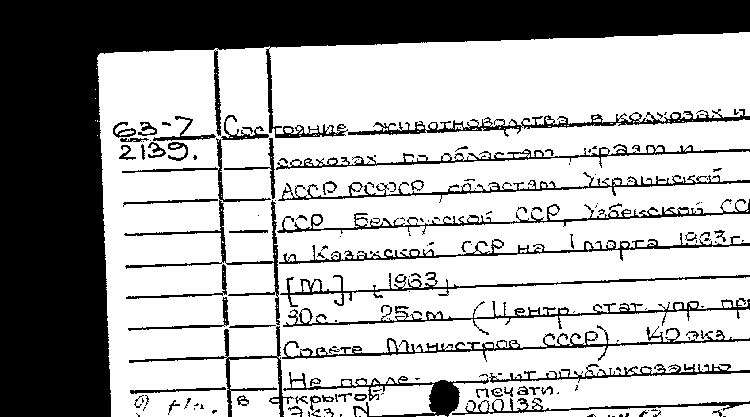 63-7 Состояние животноводства в колхозах и
2139. совхозах по областям, краям и
АССР РСФСР, областям Украинской
ССР, Белорусской ССР, Узбекской ССР
и Казахской ССР на 1 марта 1963г.
[М.], [1963].
30с. 25см. (Центр. стат. упр. при
Совете Министров СССР). 140 экз.
Не подле- жит опубликованию
в открытой печати.
Экз. N 000138.